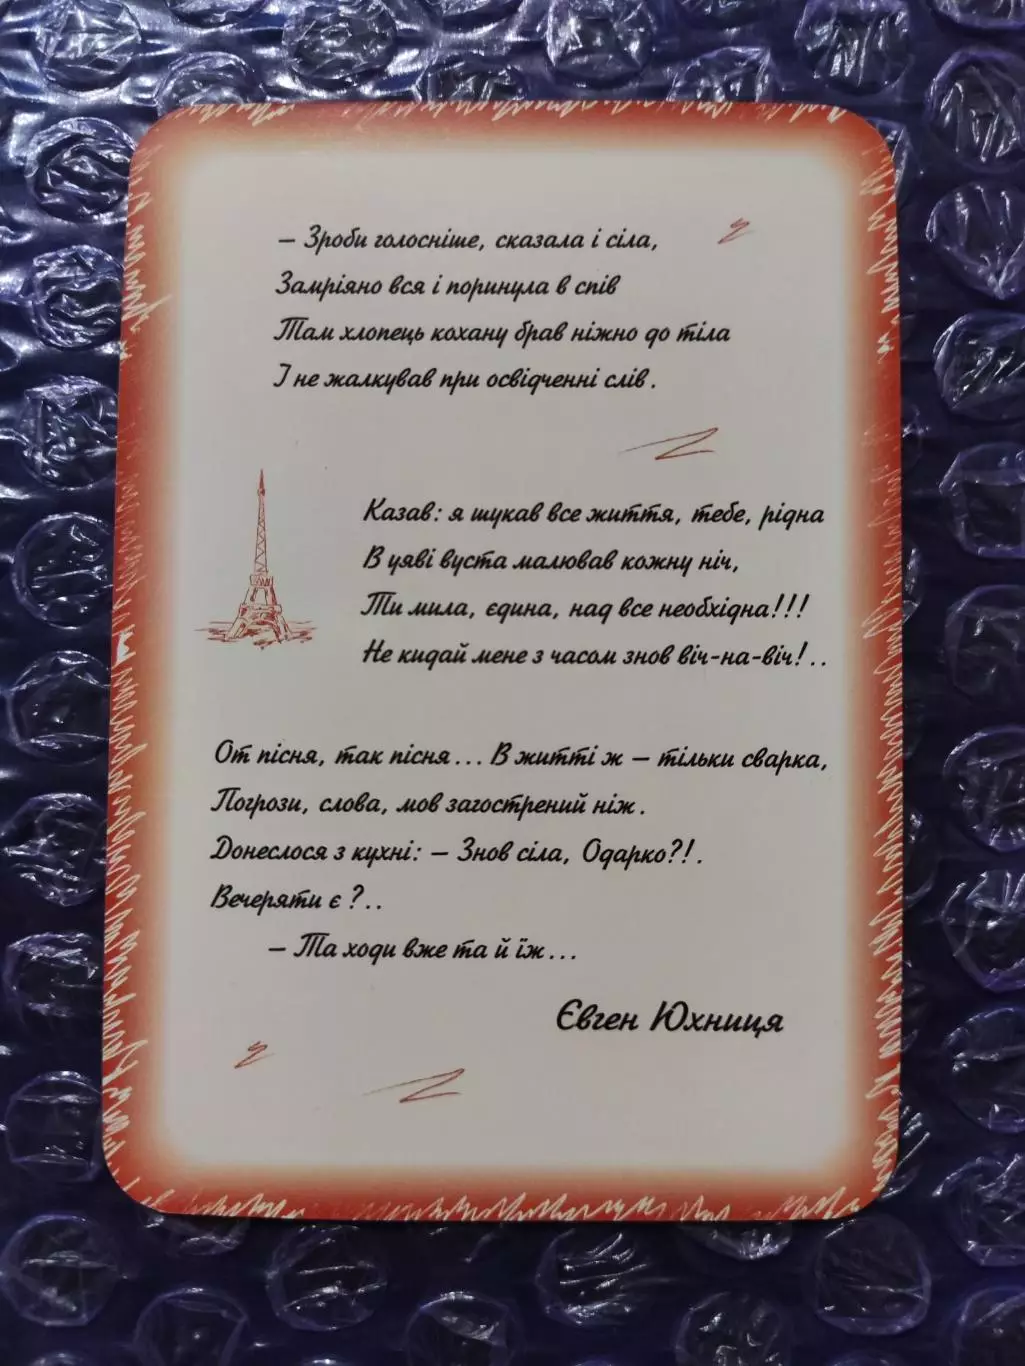 – Зроби голосніше, сказала і сіла,
Замріяно вся і поринула в спів
Там хлопець кохану брав ніжно до тіла
І не жалкував при освідченні слів.
Казав: я шукав все життя, тебе, рідна
В уяві вуста малював кожну ніч,
Ти мила, єдина, над все необхідна!!!
Не кидай мене з часом знов віч-на-віч!..
От пісня, так пісня... В житті ж – тільки сварка,
Погрози, слова, мов загострений ніж.
Донеслося з кухні: – Знов сіла, Одарко?!.
Вечеряти є?..
– Та ходи вже та й їж...
Євген Юхниця